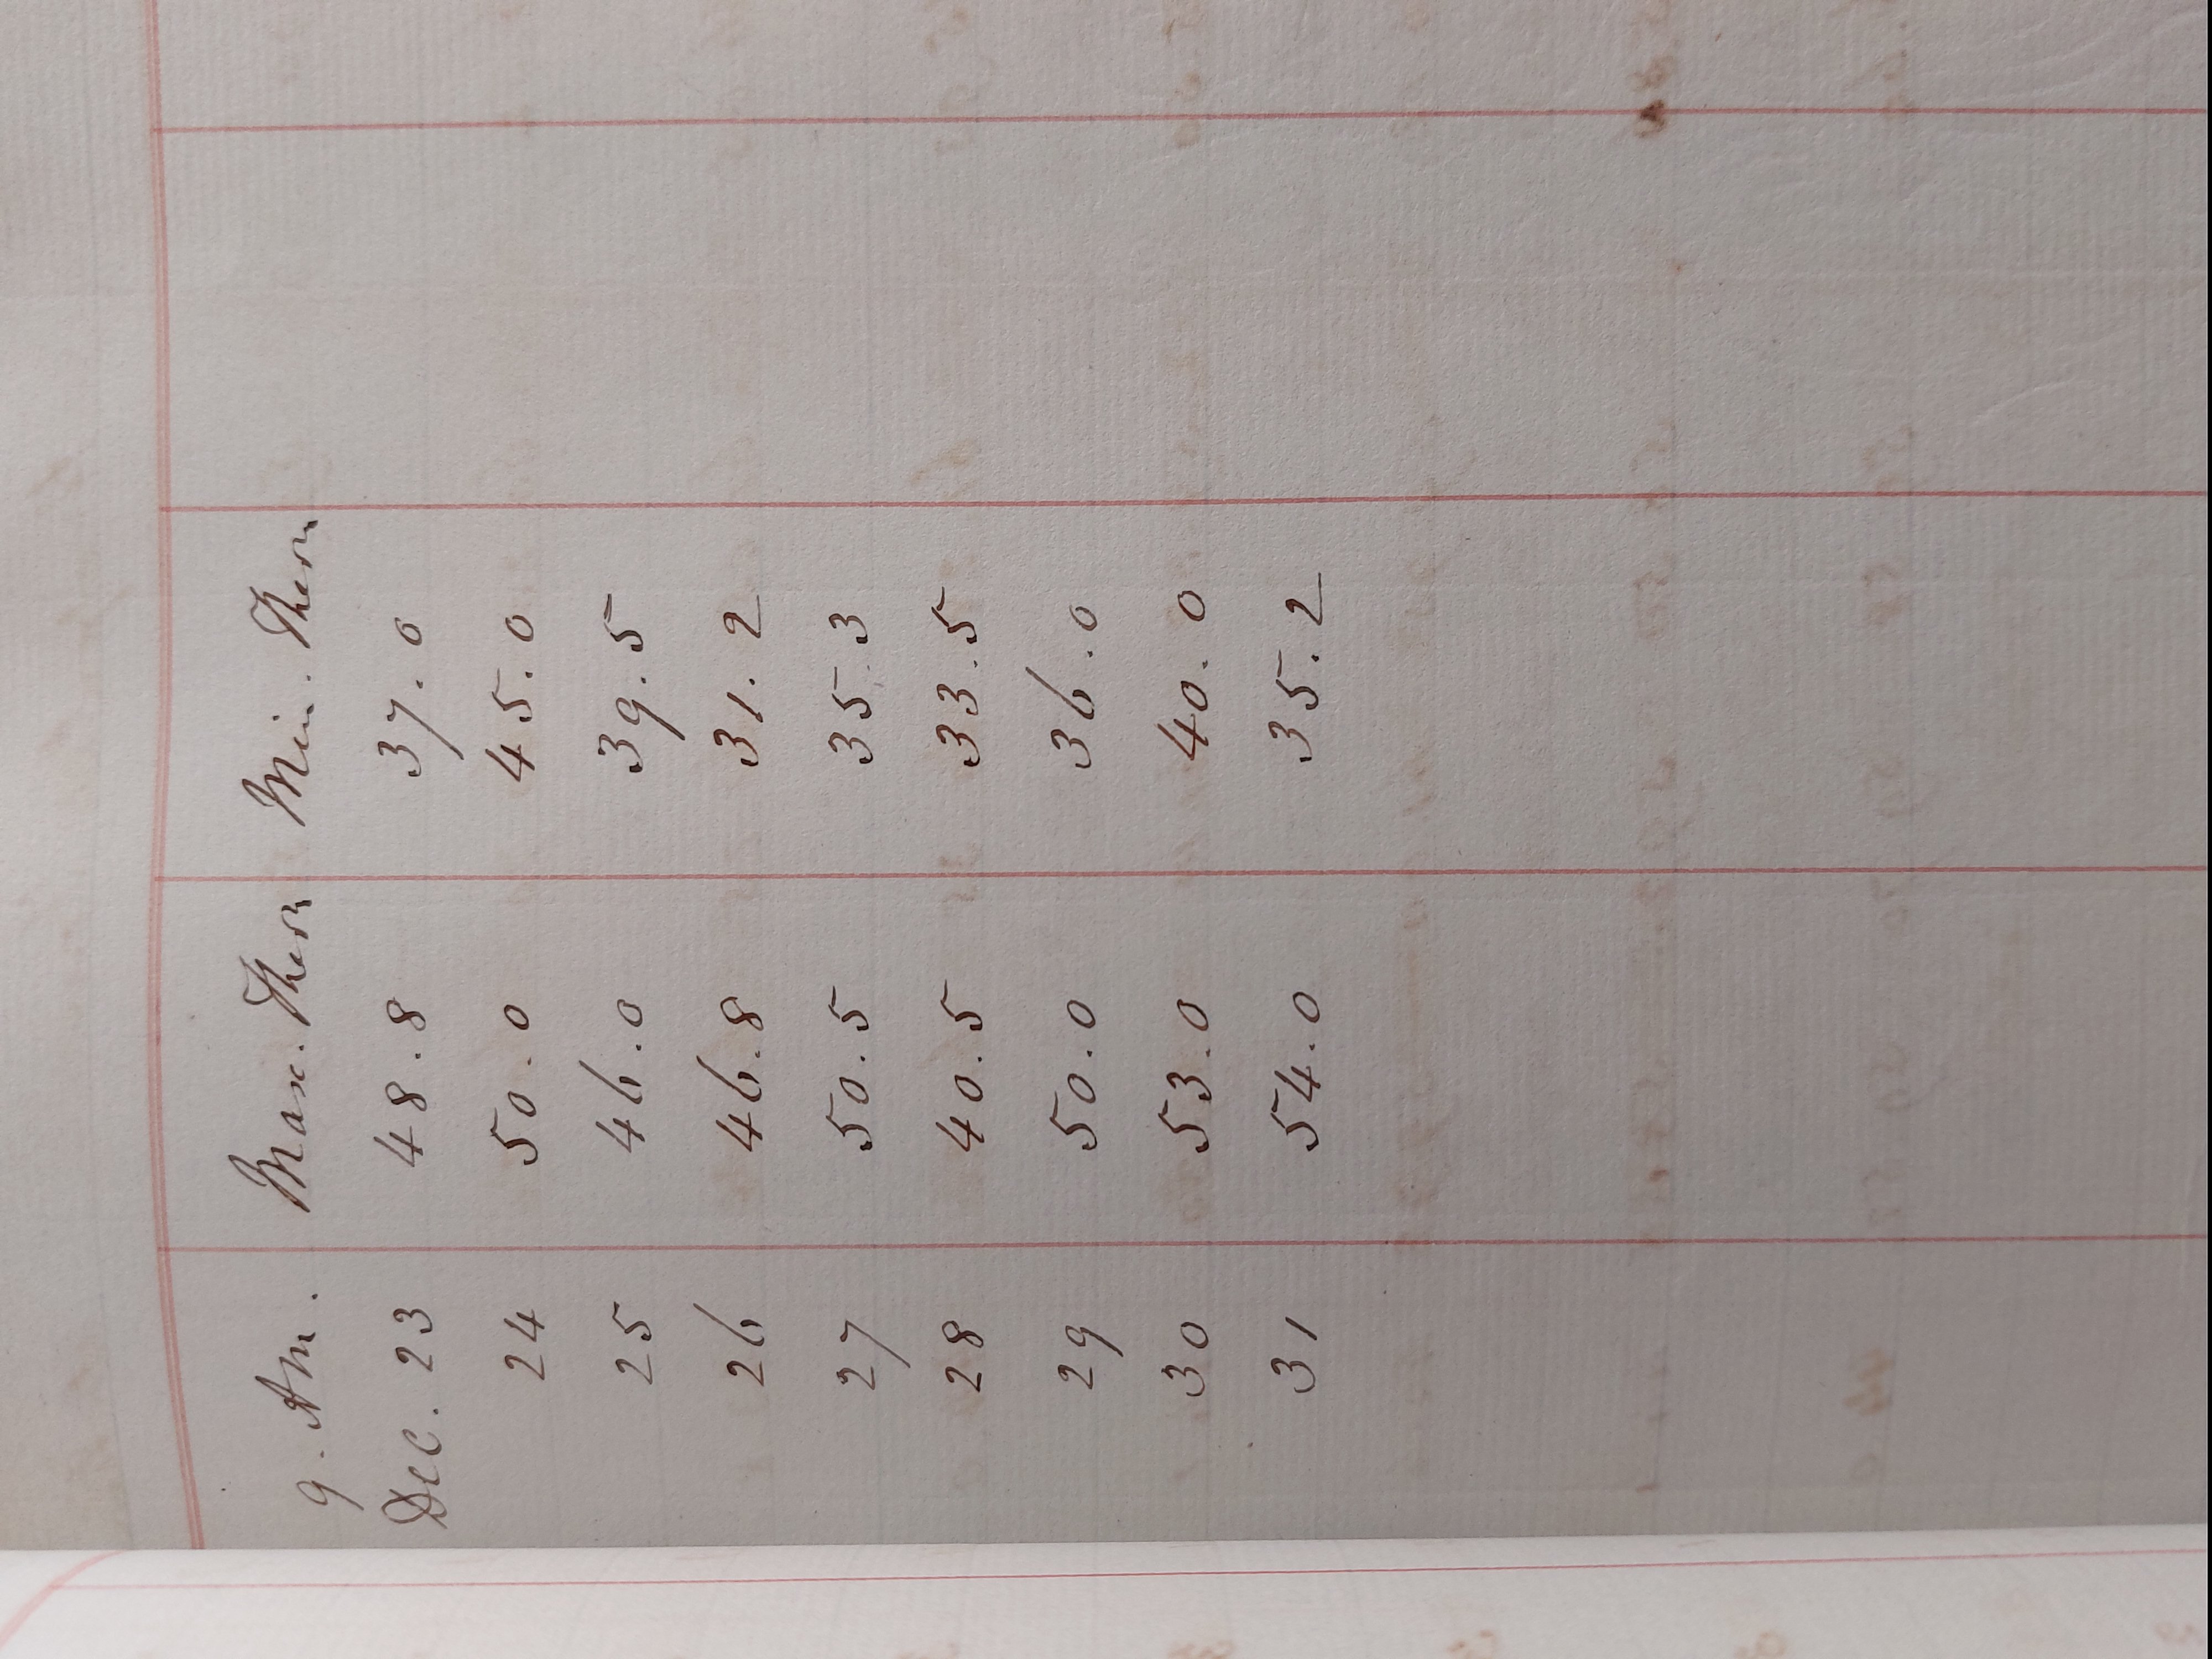 9. AM. Max. Therm Min. Therm
Dec. 23 48.8 37.0
24 50.0 45.0
25 46.0 39.5
26 46.8 31.2
27 50.5 35.3
28 40.5 33.5
29 50.0 36.0
30 53.0 40.0
31 54.0 35.2